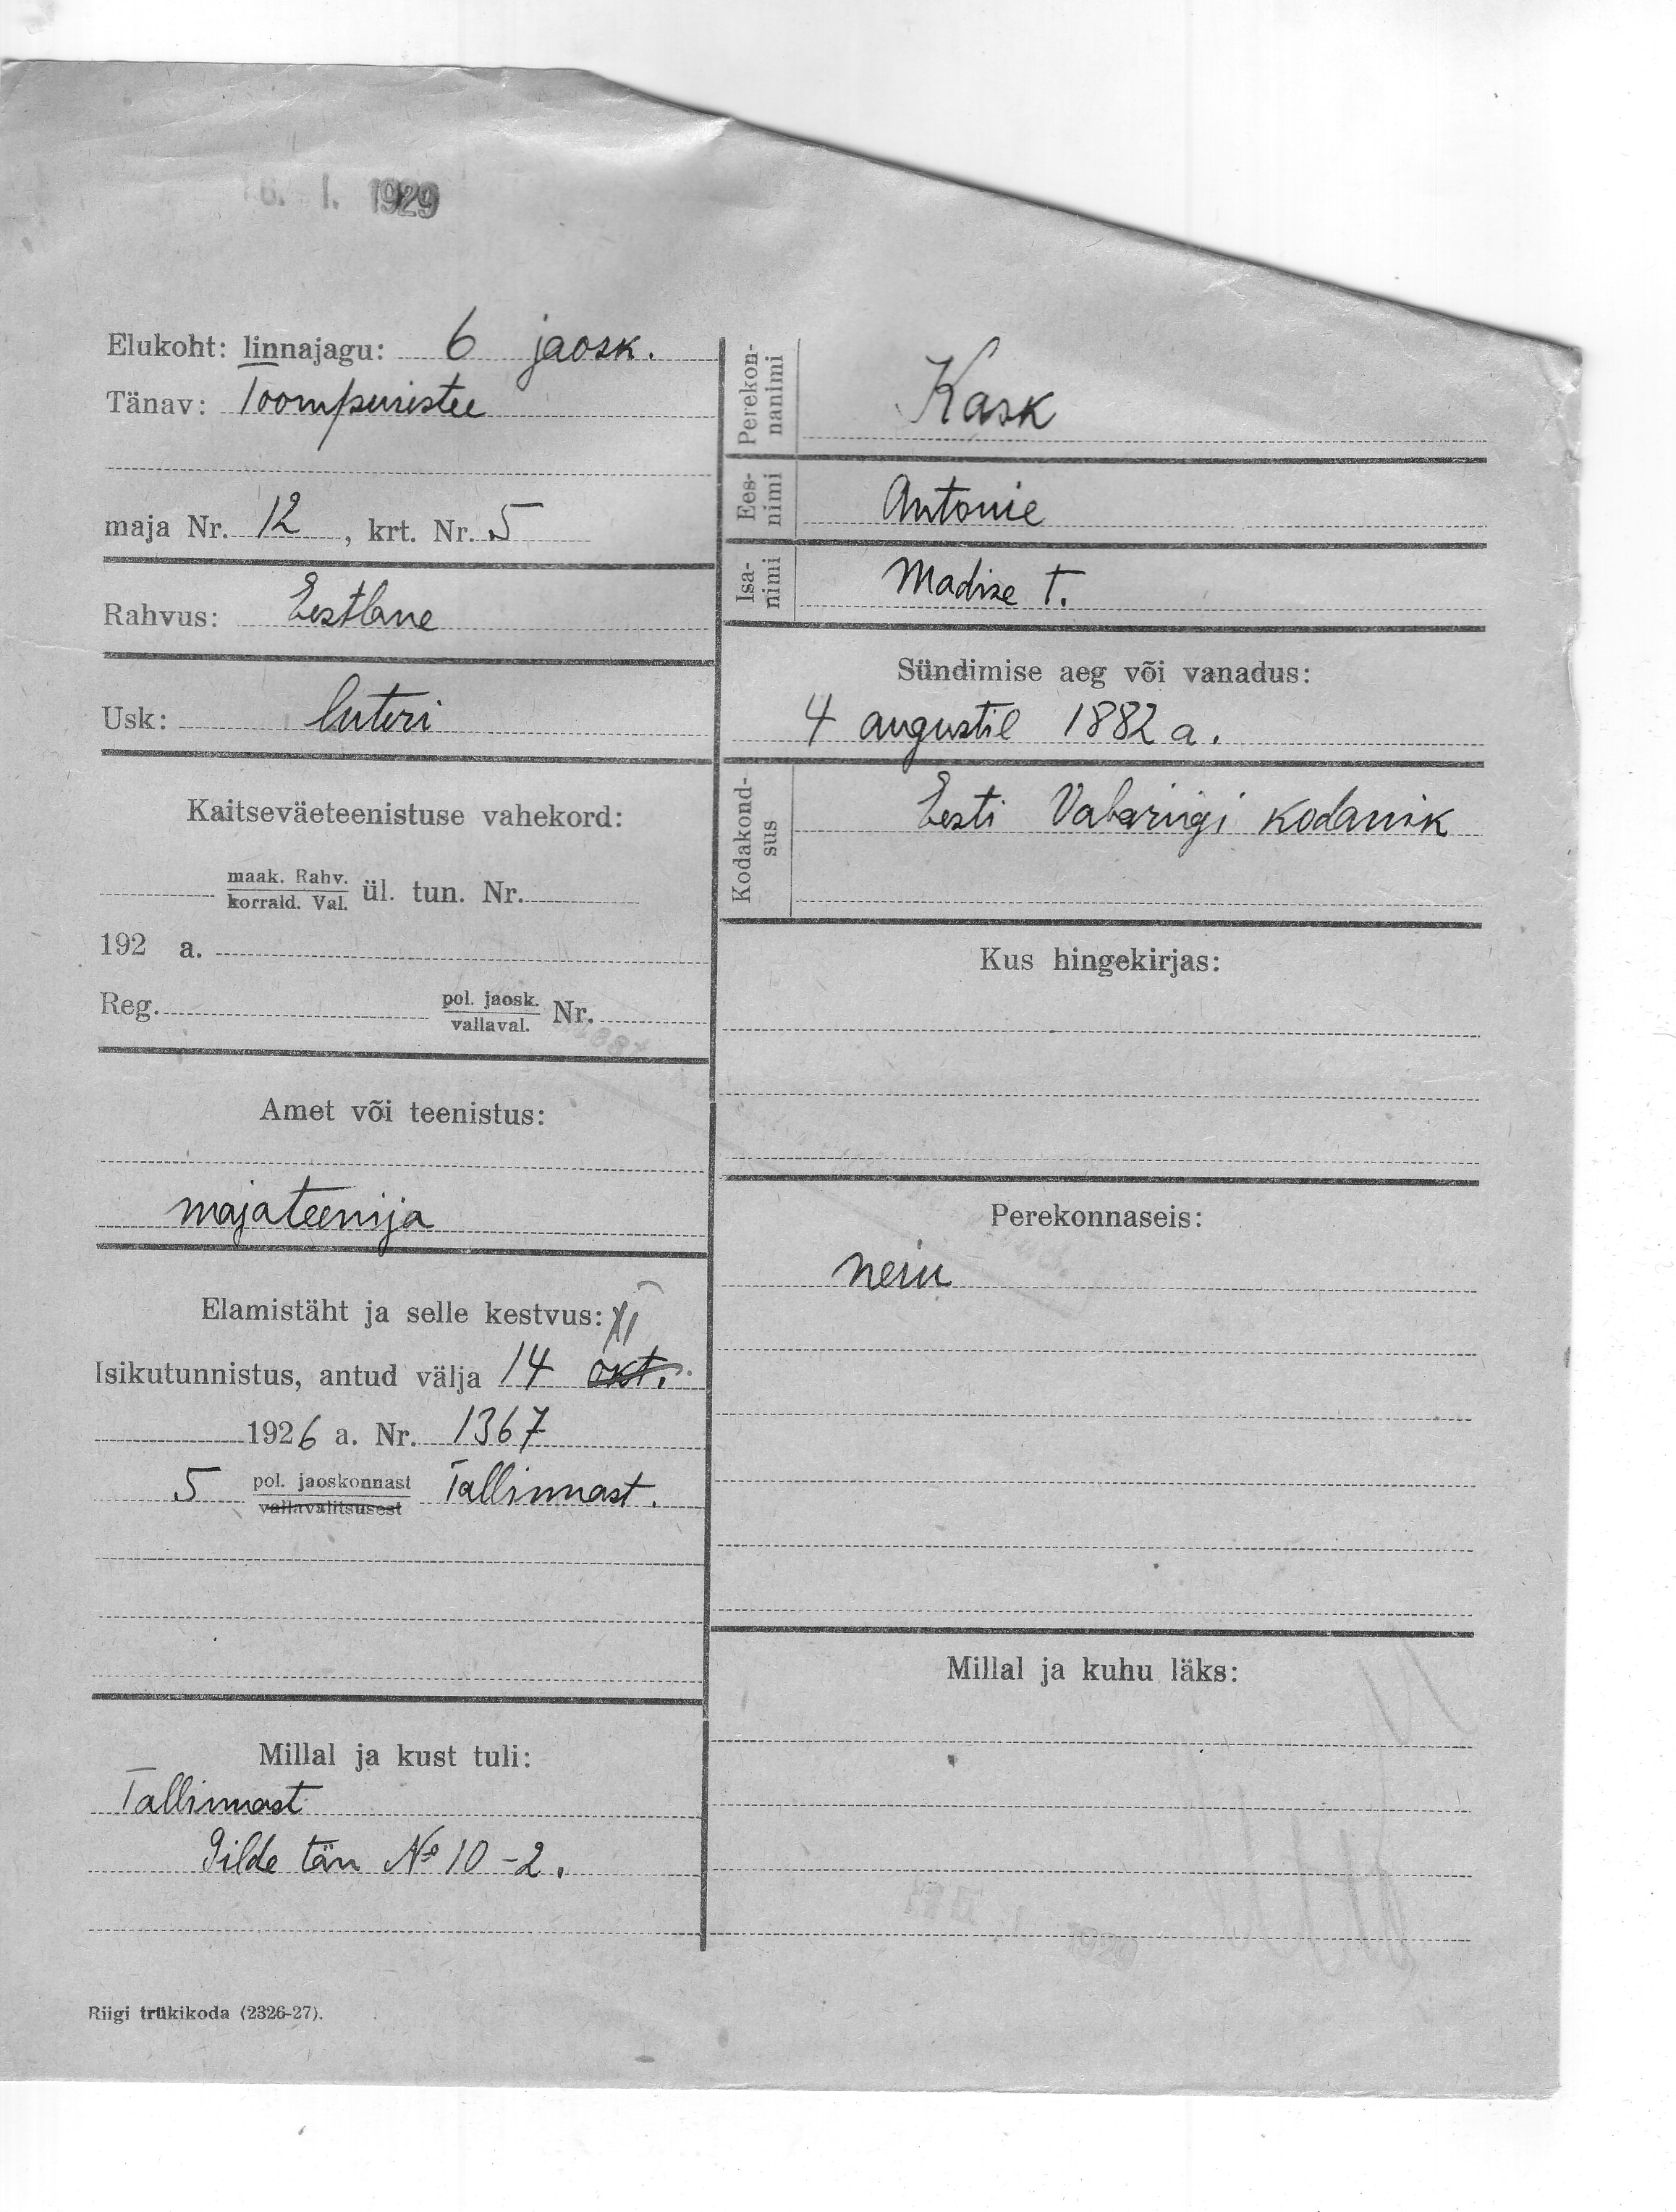 6. I. 1929
Elukoht: linnajagu: 6 jaosk.
Tänav: Toompuiestee
maja Nr. 12, krt. Nr. 5
Rahvus: Eestlane
Usk: luteri
Kaitseväeteenistuse vahekord:
maak. Rahv.
korrald. Val. ül. tun. Nr.
192 a.
Reg. pol. jaosk.
vallaval. Nr.
Amet või teenistus:
majateenija
Elamistäht ja selle kestvus: XI
Isikutunnistus, antud välja 14 okt.
1926 a. Nr. 1367
5 pol. jaoskonnast Tallinnast.
vallavalitsusest
Millal ja kust tuli:
Tallinnast
Gilde tän № 10-2.
Riigi trükikoda (2326-27).
Perekon-
nanimi
Kask
Ees-
nimi
Antonie
Isa-
nimi
Madise t.
Sündimise aeg või vanadus:
4 augustil 1882 a.
Kodakond-
sus
Eesti Vabariigi kodanik
Kus hingekirjas:
Perekonnaseis:
neiu
Millal ja kuhu läks:
1929